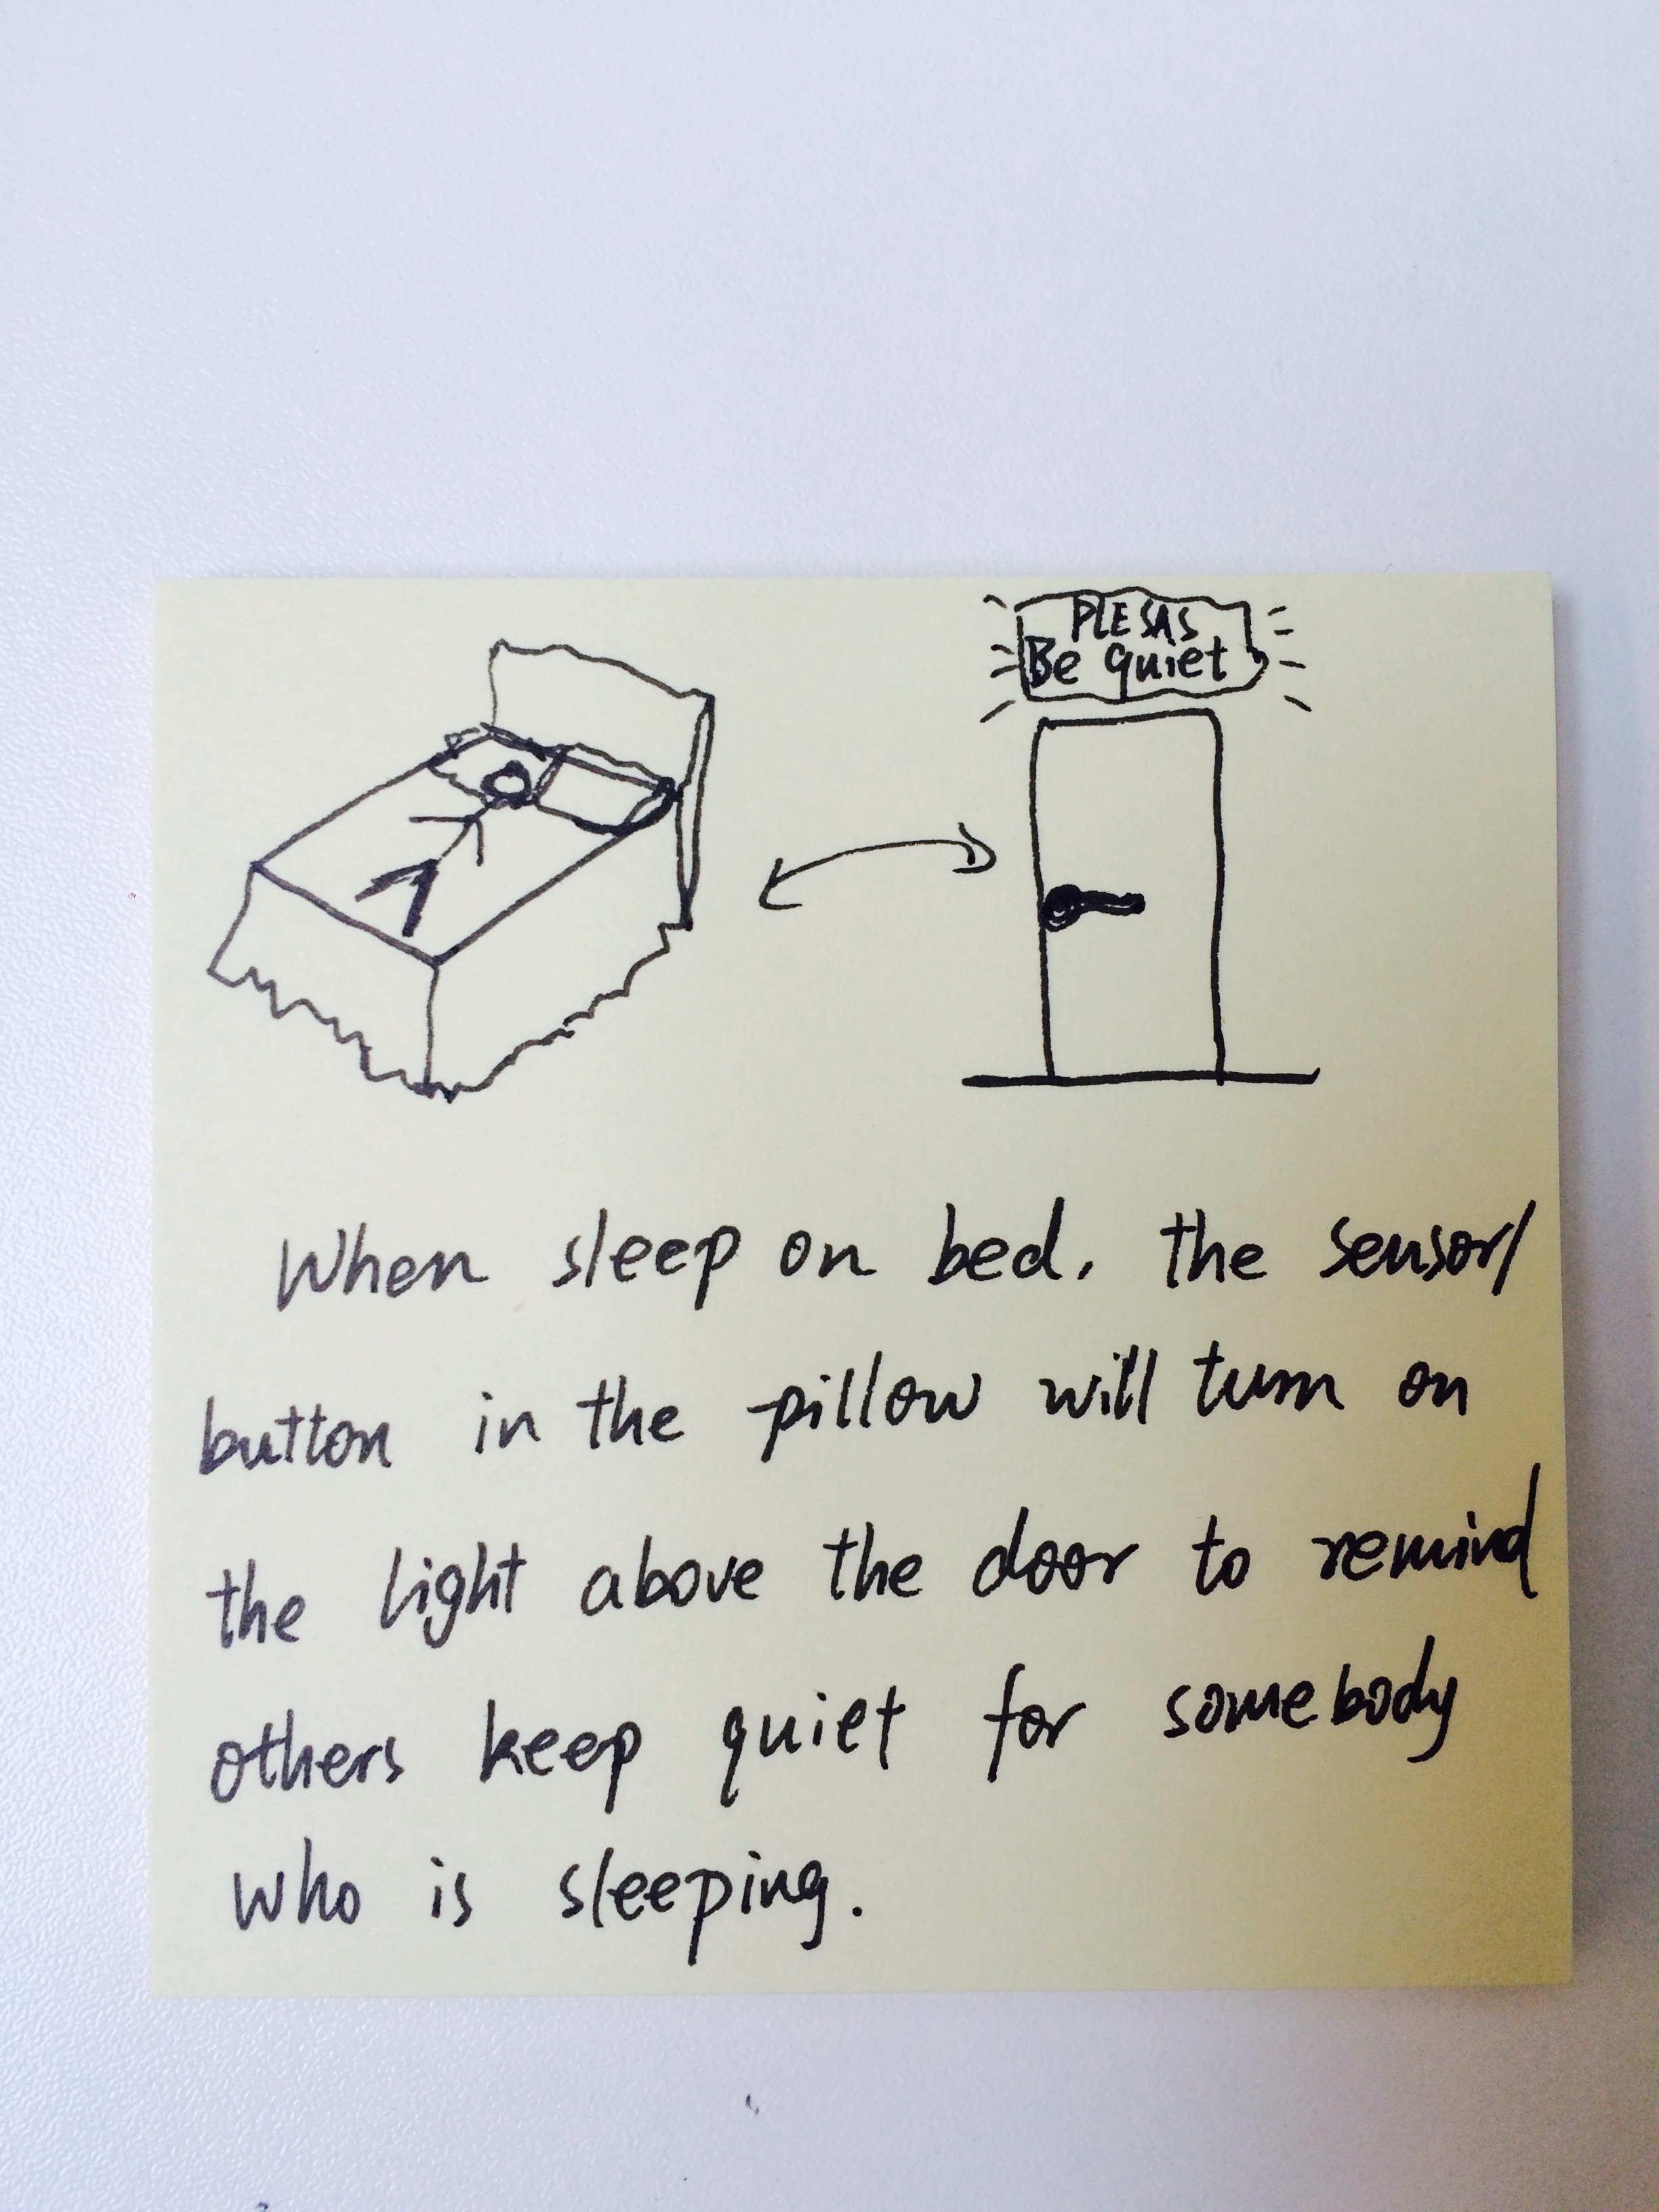 PLESAS
Be quiet
When sleep on bed, the sensor/
button in the pillow will turn on
the light above the door to remind
others keep quiet for somebody
who is sleeping.